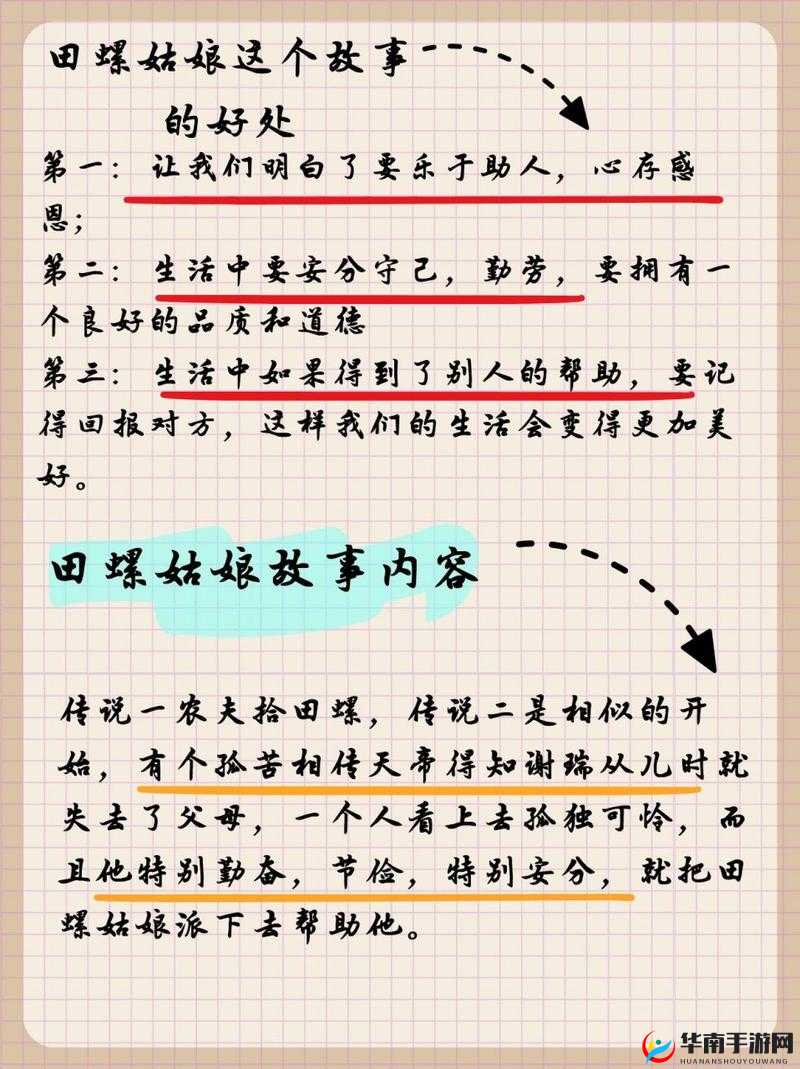 田螺姑娘这个故事
的好处
第一：让我们明白了要乐于助人，心存感
恩；
第二：生活中要安分守己，勤劳，要拥有一
个良好的品质和道德
第三：生活中如果得到了别人的帮助，要记
得回报对方，这样我们的生活会变得更加美
好。
田螺姑娘故事内容
传说一农夫拾田螺，传说二是相似的开
始，有个孤苦相传天帝得知谢瑞从儿时就
失去了父母，一个人看上去孤独可怜，而
且他特别勤奋，节俭，特别安分，就把田
螺姑娘派下去帮助他。
华南手游网
HUANANSHOUYOUWANG